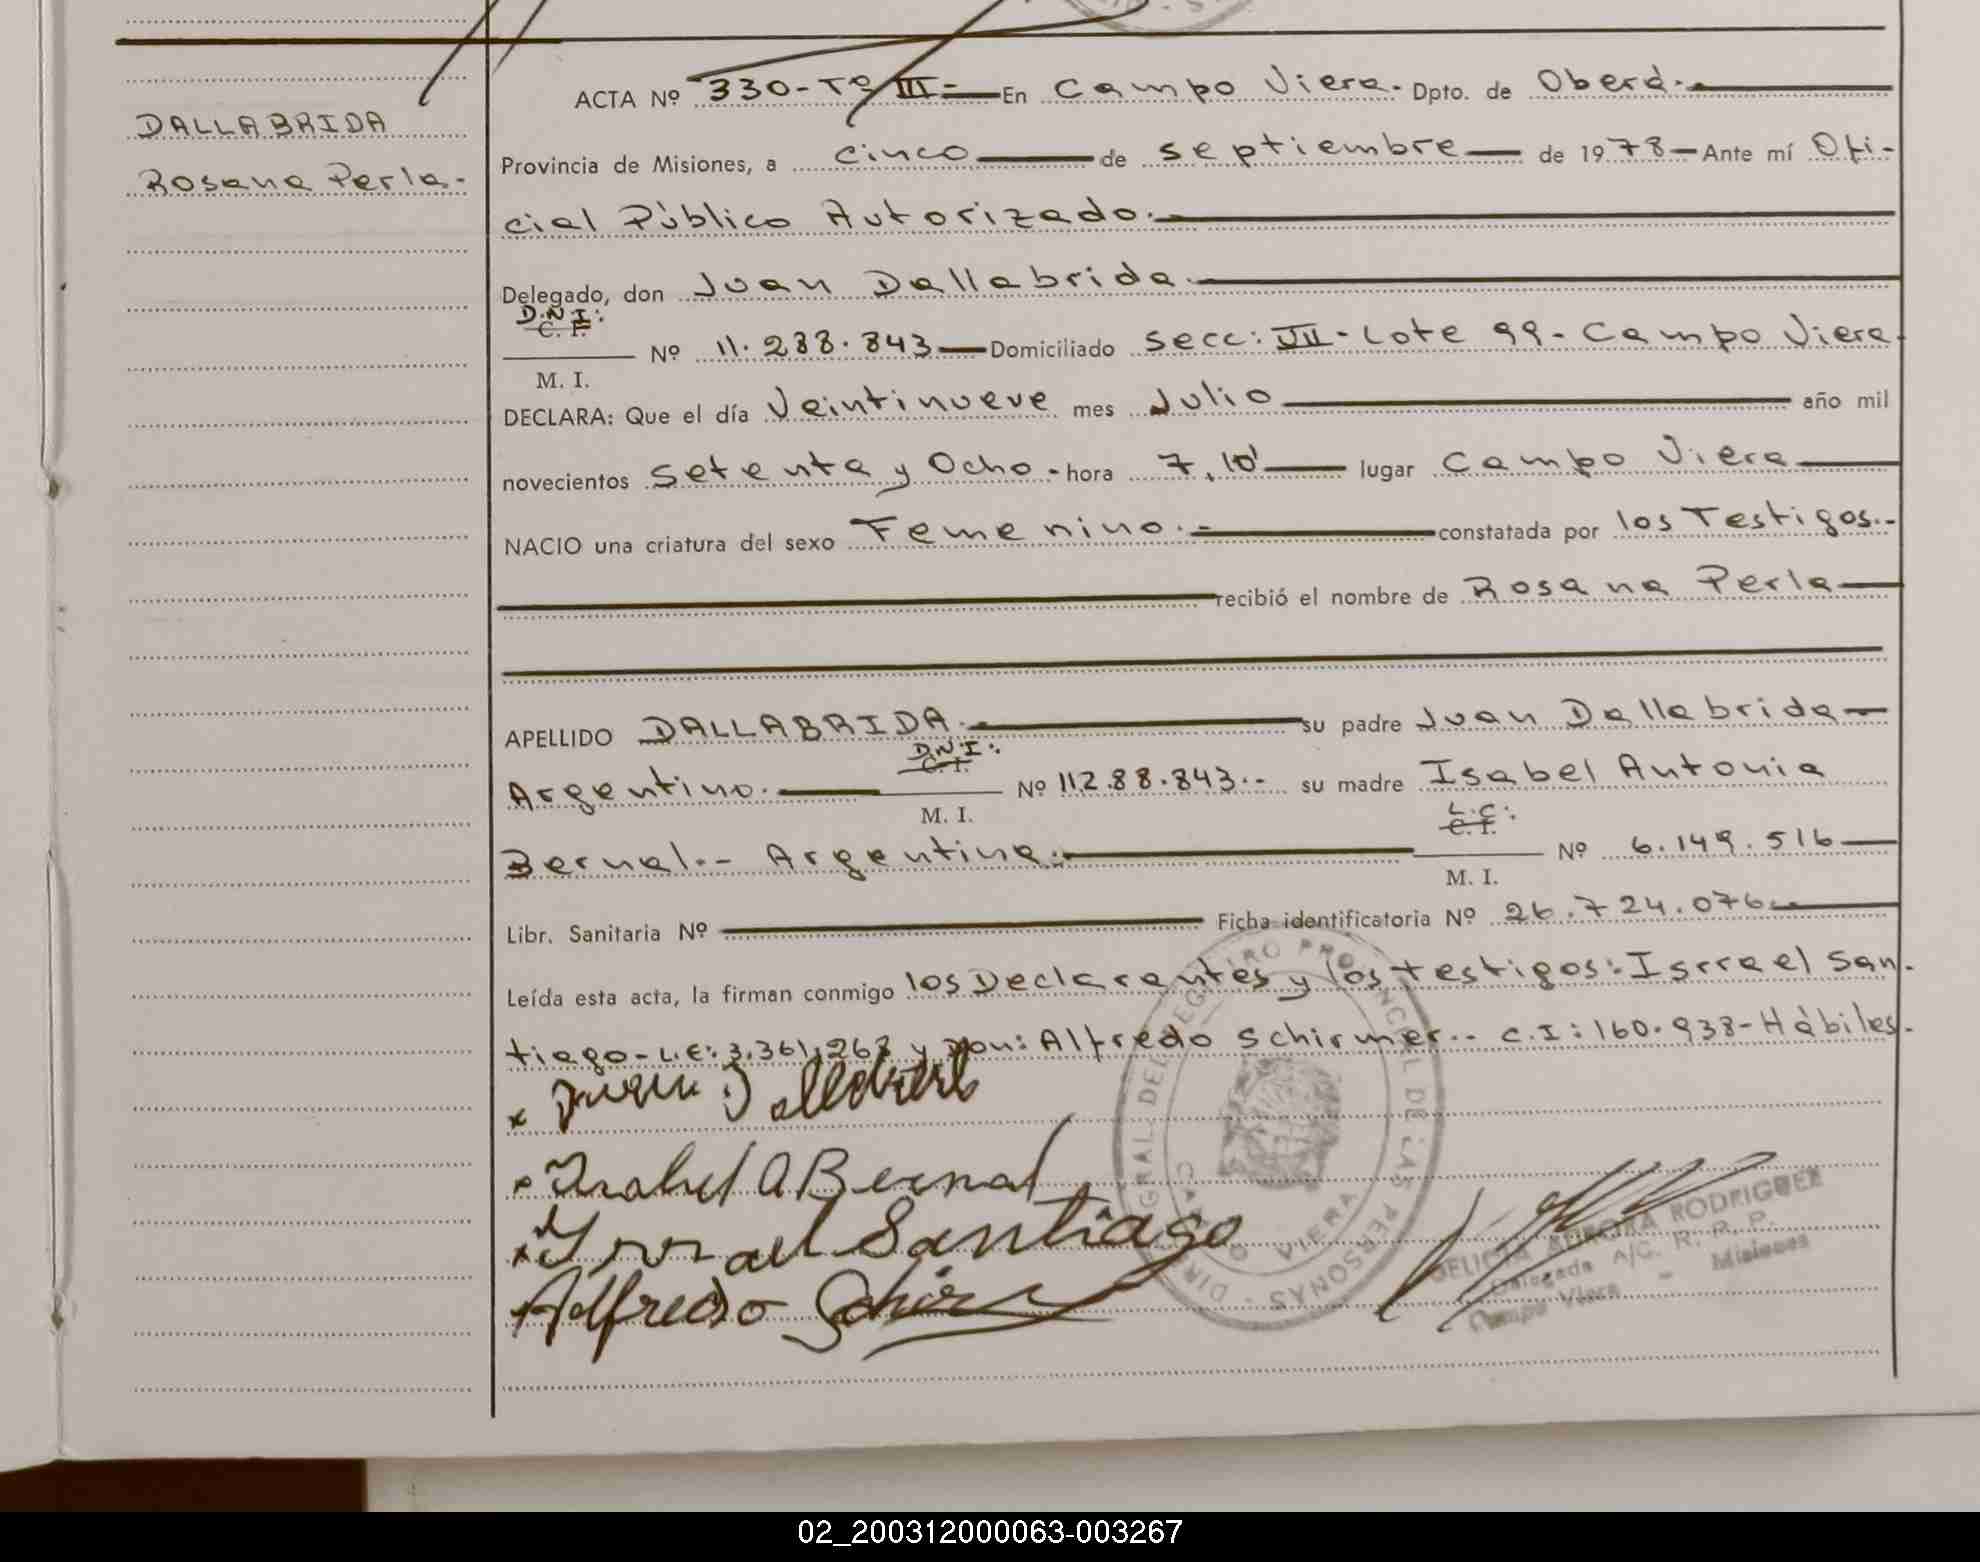 ACTA Nº 330-Tº III- En Campo Viera. Dpto. de Oberá.
DALLABRIDA
Rosana Perla.
Provincia de Misiones, a cinco de septiembre de 1978 Ante mí Ofi-
cial Público Autorizado.
Delegado, don Juan Dallabrida.
D.N.I:
C. I.
M. I.
Nº 11.288.843 Domiciliado Secc: VII-Lote 99-Campo Viera
DECLARA: Que el día Veintinueve mes Julio año mil
novecientos Setenta y Ocho.- hora 7,10' lugar Campo Viera
NACIO una criatura del sexo Femenino.- constatada por los Testigos.-
recibió el nombre de Rosana Perla
APELLIDO DALLABRIDA.- su padre Juan Dallabrida
D.N.I:
C. I.
Argentino. M. I. Nº 112.88.843.- su madre Isabel Antonia
L.C:
C. I.
Bernal.- Argentina.- M. I. Nº 6.149.516
Libr. Sanitaria Nº Ficha identificatoria Nº 26.724.076
Leída esta acta, la firman conmigo los Declarantes y los testigos: Isrrael San-
tiago-L.E: 3.361.268 y Don: Alfredo Schirmer.- C.I: 160.938-Hábiles.
x Juan Dallabrida
Isabel A Bernal
x Isrrael Santiago
Alfredo Schir
DIR. GRAL. DEL REGISTRO PROVINCIAL DE LAS PERSONAS
CAMPO VIERA
DELICIA AURORA RODRIGUEZ
Delegada A/C. R. P. P.
Campo Viera - Misiones
02_200312000063-003267